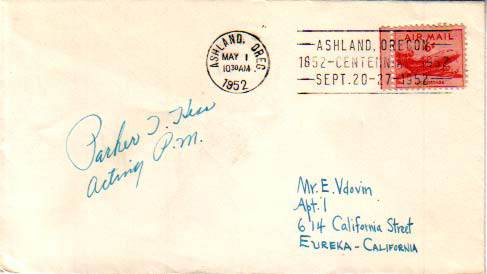 ASHLAND, OREG.
MAY 1
10 30 AM
1952
ASHLAND, OREGON
1852-CENTENNIAL-1952
SEPT. 20-27-1952
AIR MAIL
Parker T. Hess
Acting P.M.
Mr. E. Vdovin
Apt. 1
614 California Street
EUREKA - CALIFORNIA